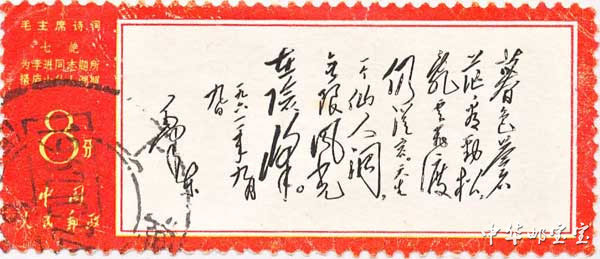 毛主席诗词
七绝
为李进同志题所
摄庐山仙人洞照
8分
中国
人民邮政
暮色蒼
茫看勁松,
亂雲飛渡
仍從容。天生
一个仙人洞,
無限風光
在險峰。
一九六一年九月
九日
毛泽东
中华邮宝宝